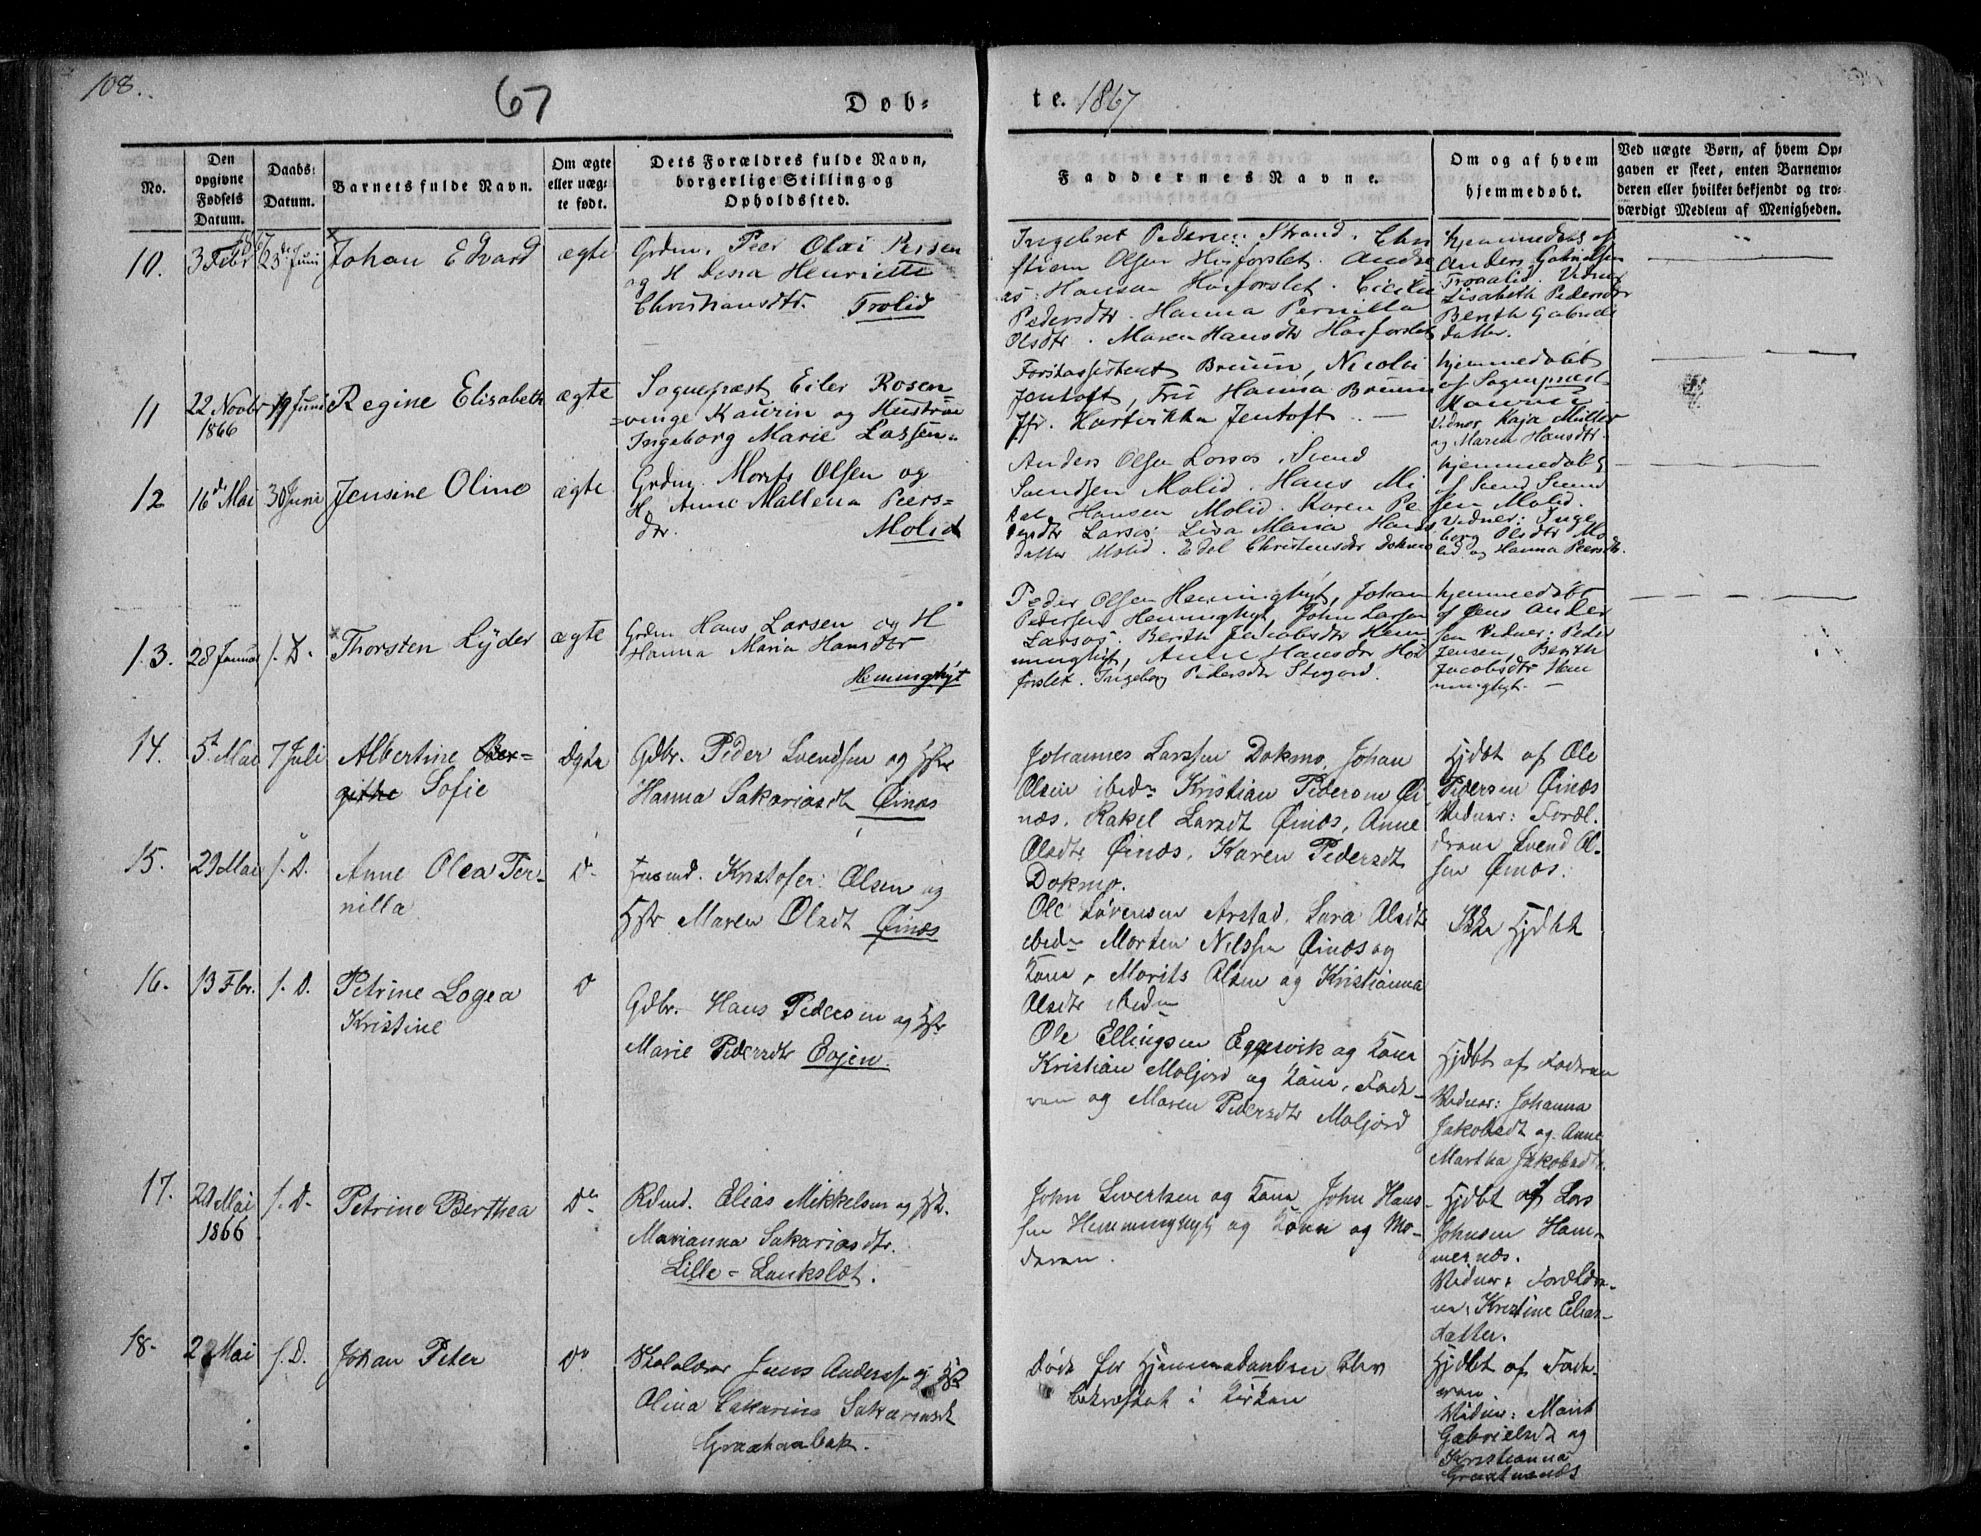 108.
67
Døb-
te. 1867
No.
Den opgivne Fødsels Datum.
Daabs-Datum.
Barnets fulde Navn.
Om ægte eller uægte født.
Dets Forældres fulde Navn, borgerlige Stilling og Opholdssted.
Faddernes Navne.
Om og af hvem hjemmedøbt.
Ved uægte Børn, af hvem Opgaven er skeet, enten Barnemoderen eller hvilket bekjendt og troværdigt Medlem af Menigheden.
10. 3 Febr 1867 23de Juni Johan Edvard ægte
Grdm. Peer Olai Persen
og H Henriette
Christiansdtr. Trolid
Ingebret Pedersen Strand. Chri
stian Olsen Hosforslet. Andre
as Hansen Hosforslet. Cicilie
Pedersdtr. Hanna Pernilla
Olsdtr. Maren Hansdtr Hosforslet
hjemmedøbt af
Anders Gabrielsen
Troaalid. Vidner
Lisabeth Pedersdtr
Berith Gabriels
datter.
11 22 Novbr 1866 19 Juni Regine Elisabeth ægte
Sognepræst Eiler Rosen-
=vinge Kaurin og Hustrue
Ingeborg Marie Lassen
Forstassistent Bruun, Nicolai
Jentoft, Fru Hanna Bruun
Jfr. Hartvikka Jentoft. —
hjemmedøbt
af Sognepræst
Kaurin
Vidner Kaja Müller
og Maren Hansdtr.
12 16de Mai 30 Juni Jensine Oline ægte
Grdm. Morits Olsen og
H. Anne Maltena Peers-
dtr. Molid
Anders Olsen Larsos. Svend
Svendsen Molid. Hans Mi
kal Hansen Molid. Karen Pe
dersdtr Larsos. Lisa Maria Hans
datter Molid. Edel Christensdtr Dokmo
hjemmedøbt
af Svend Svend
sen Molid.
Vidner: Inge
borg Olsdtr Mo
lid og Hanna Peersdtr.
13. 28 Januar s. D. Thorsten Lyder ægte
Grdm Hans Larsen og H
Hanna Maria Hansdtr
Hemminghyt
Peder Olsen Hemminghyt, Johan
Pedersen Hemminghyt, John Larsen
Larsos. Berith Jacobsdtr Hem
minghyt, Anne Hansdtr Hos
forslet. Ingeborg Pedersdtr Storjord.
hjemmedøbt
af Jens Ander
sen Vidner: Peder
Jensen, Berith
Jacobsdtr Hem
minghyt. —
14. 5t Mai 7 Juli Albertine Ber-
githe Sofie ægte
Gdbr. Peder Svendsen og Hstr
Hanna Sakariasdt Øinæs
Johannes Larssen Dokmo, Johan
Olsen ibedn Kristian Pedersen Øi
næs. Rakel Larsdt Øinæs, Anne
Olsdtr Øinæs, Karen Pedersdt
Dokmo.
Hjdbt af Ole
Pedersen Øinæs
Vidner: Foræl.
drene Svend Ol-
sen Øinæs.
15. 29 Mai s. D. Anne Olea Per-
nilla D.
Husmd. Kristofer Olsen og
Hstr Maren Olsdt Øinæs
Ole Sørensen Arstad. Sara Olsdtr
ibedn Morten Nilssen Øinæs og
Kone, Morits Olsen og Kristianna
Olsdtr ibedn
Ikke Hjdbt
16. 13 Fbr. s. D. Petrine Logea
Kristine D
Gdbr. Hans Pedersen og Hstr
Marie Pedersdtr Evjen.
Ole Ellingsen Eggesvik og Kone
Kristian Moljord og Kone, Fade-
ren og Maren Pedersdtr Moljord
Hjdbt af Faderen
Vidner: Johanna
Jakobsdt og Anne
Martha Jakobsdtr.
17. 21 Mai 1866 s. D. Petrine Berthea Do
Rdmd. Elias Mikkelsen og Hst.
Marianna Sakariasdtr.
Lille-Lænkslæt.
John Sivertsen og Kone, John Hans-
sen Hemminghyt og Kone og Mo-
deren.
Hjdbt af Lars
Johnsen Ham-
mernæs.
Vidner: Forældre-
ne, Kristine Elias-
datter.
18. 2 Mai s. D. Johan Peter Do
Skolelærer Jens Anderss. og Hst
Olina Sakariasdt
Graatnæsbak.
Døde før Hjemmedaaben blev
bekræftet i Kirken
Hjdbt af Fade-
ren
Vidner: Marit
Gabrielsd og
Kristianna
Graatnæs